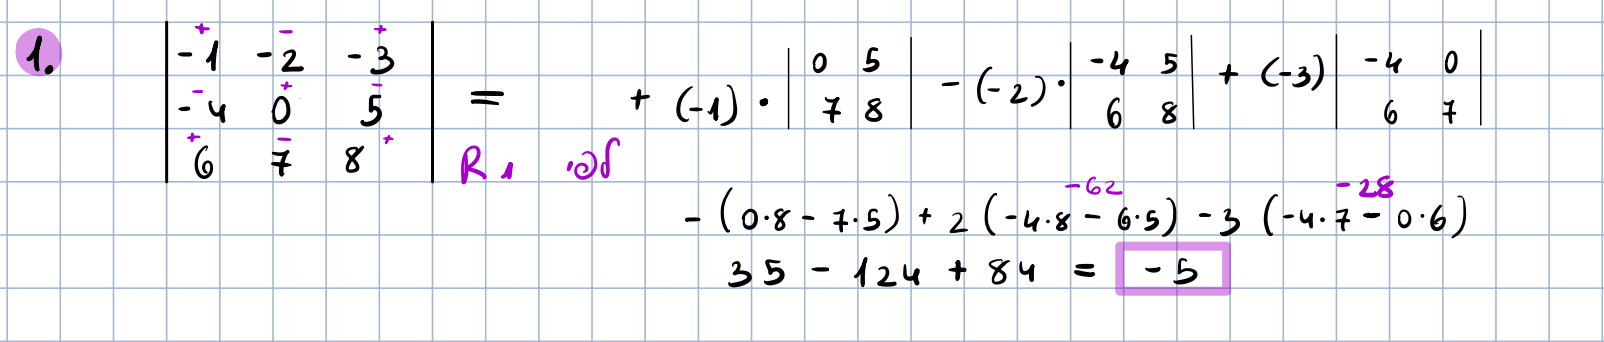 1.
+ - +
-1 -2 -3
- + -
-4 0 5
+ - +
6 7 8
= + (-1) · | 0 5 | - (-2) · | -4 5 | + (-3) | -4 0 |
| 7 8 | | 6 8 | | 6 7 |
R1
-62 -28
- (0·8 - 7·5) + 2 (-4·8 - 6·5) - 3 (-4·7 - 0·6)
35 - 124 + 84 = -5